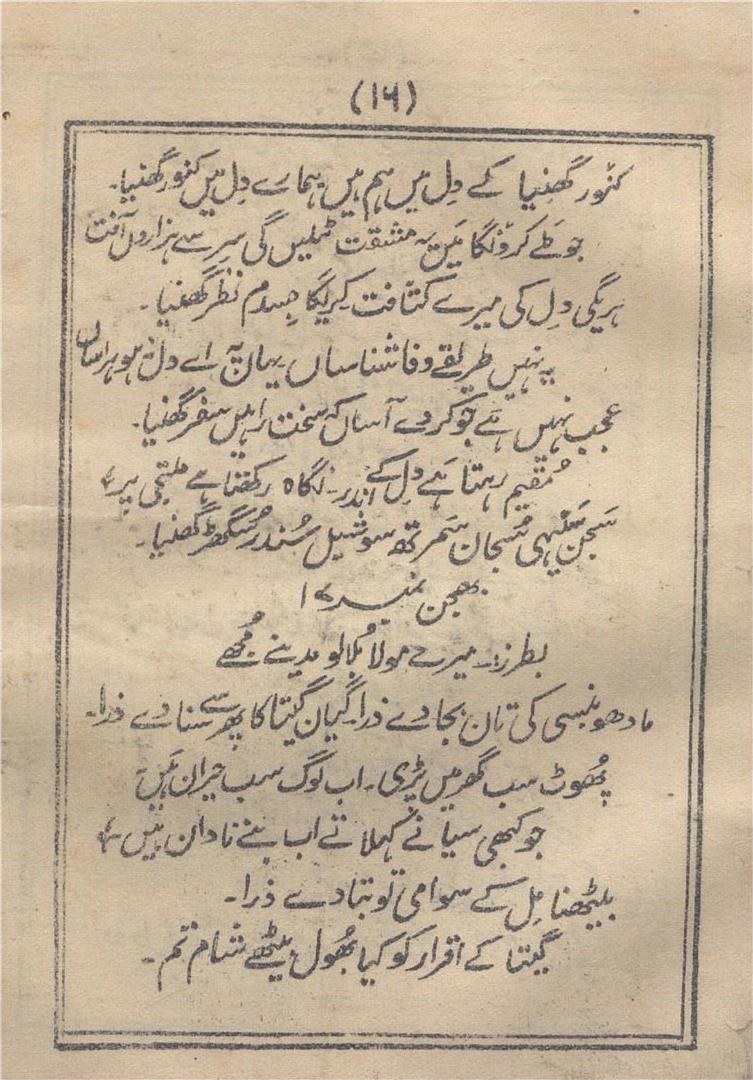 (۱۶)
کنور گھنیا کے دل میں ہم ہیں ہمارے دل میں کنور گھنیا۔
جوطے کرونگا مَیں یہ مشقت ٹھلیں گی سر سے ہزاروں آفت
ہریگی دل کی میرے کثافت کریگا جسدم نظر گھنیا۔
یہ نہیں طریقے وفا شناساں یہاں پہ اے دل نہ ہو ہراساں
عجب نہیں ہے جو کر دے آساں کہ سخت راہیں سفر گھنیا۔
مُقیم رہتا ہَے دِل کے اندر۔ نگاہ رکھتا ہے ملتجی پر
سَجن سَنیہی سُجان سَمرتھ سوشیل سُندر سُگھڑ گھنیا۔
بھجن نمبر ۱۶
بطرز۔ میرے مولا بُلالو مدینے مُجھے
مادھو بنسی کی تان بجا دے ذرا۔ گیان گیتا کا پھر سے سنا دے ذرا۔
پُھوٹ سب گھر میں پڑی۔ اب لوگ سب حیران ہَیں
جو کبھی سیانے کہلاتے اب بنے نادان ہیں
بیٹھنا مِل کے سوامی تو بتا دے ذرا۔
گیتا کے اقرار کو کیا بُھول بیٹھے شام تم۔